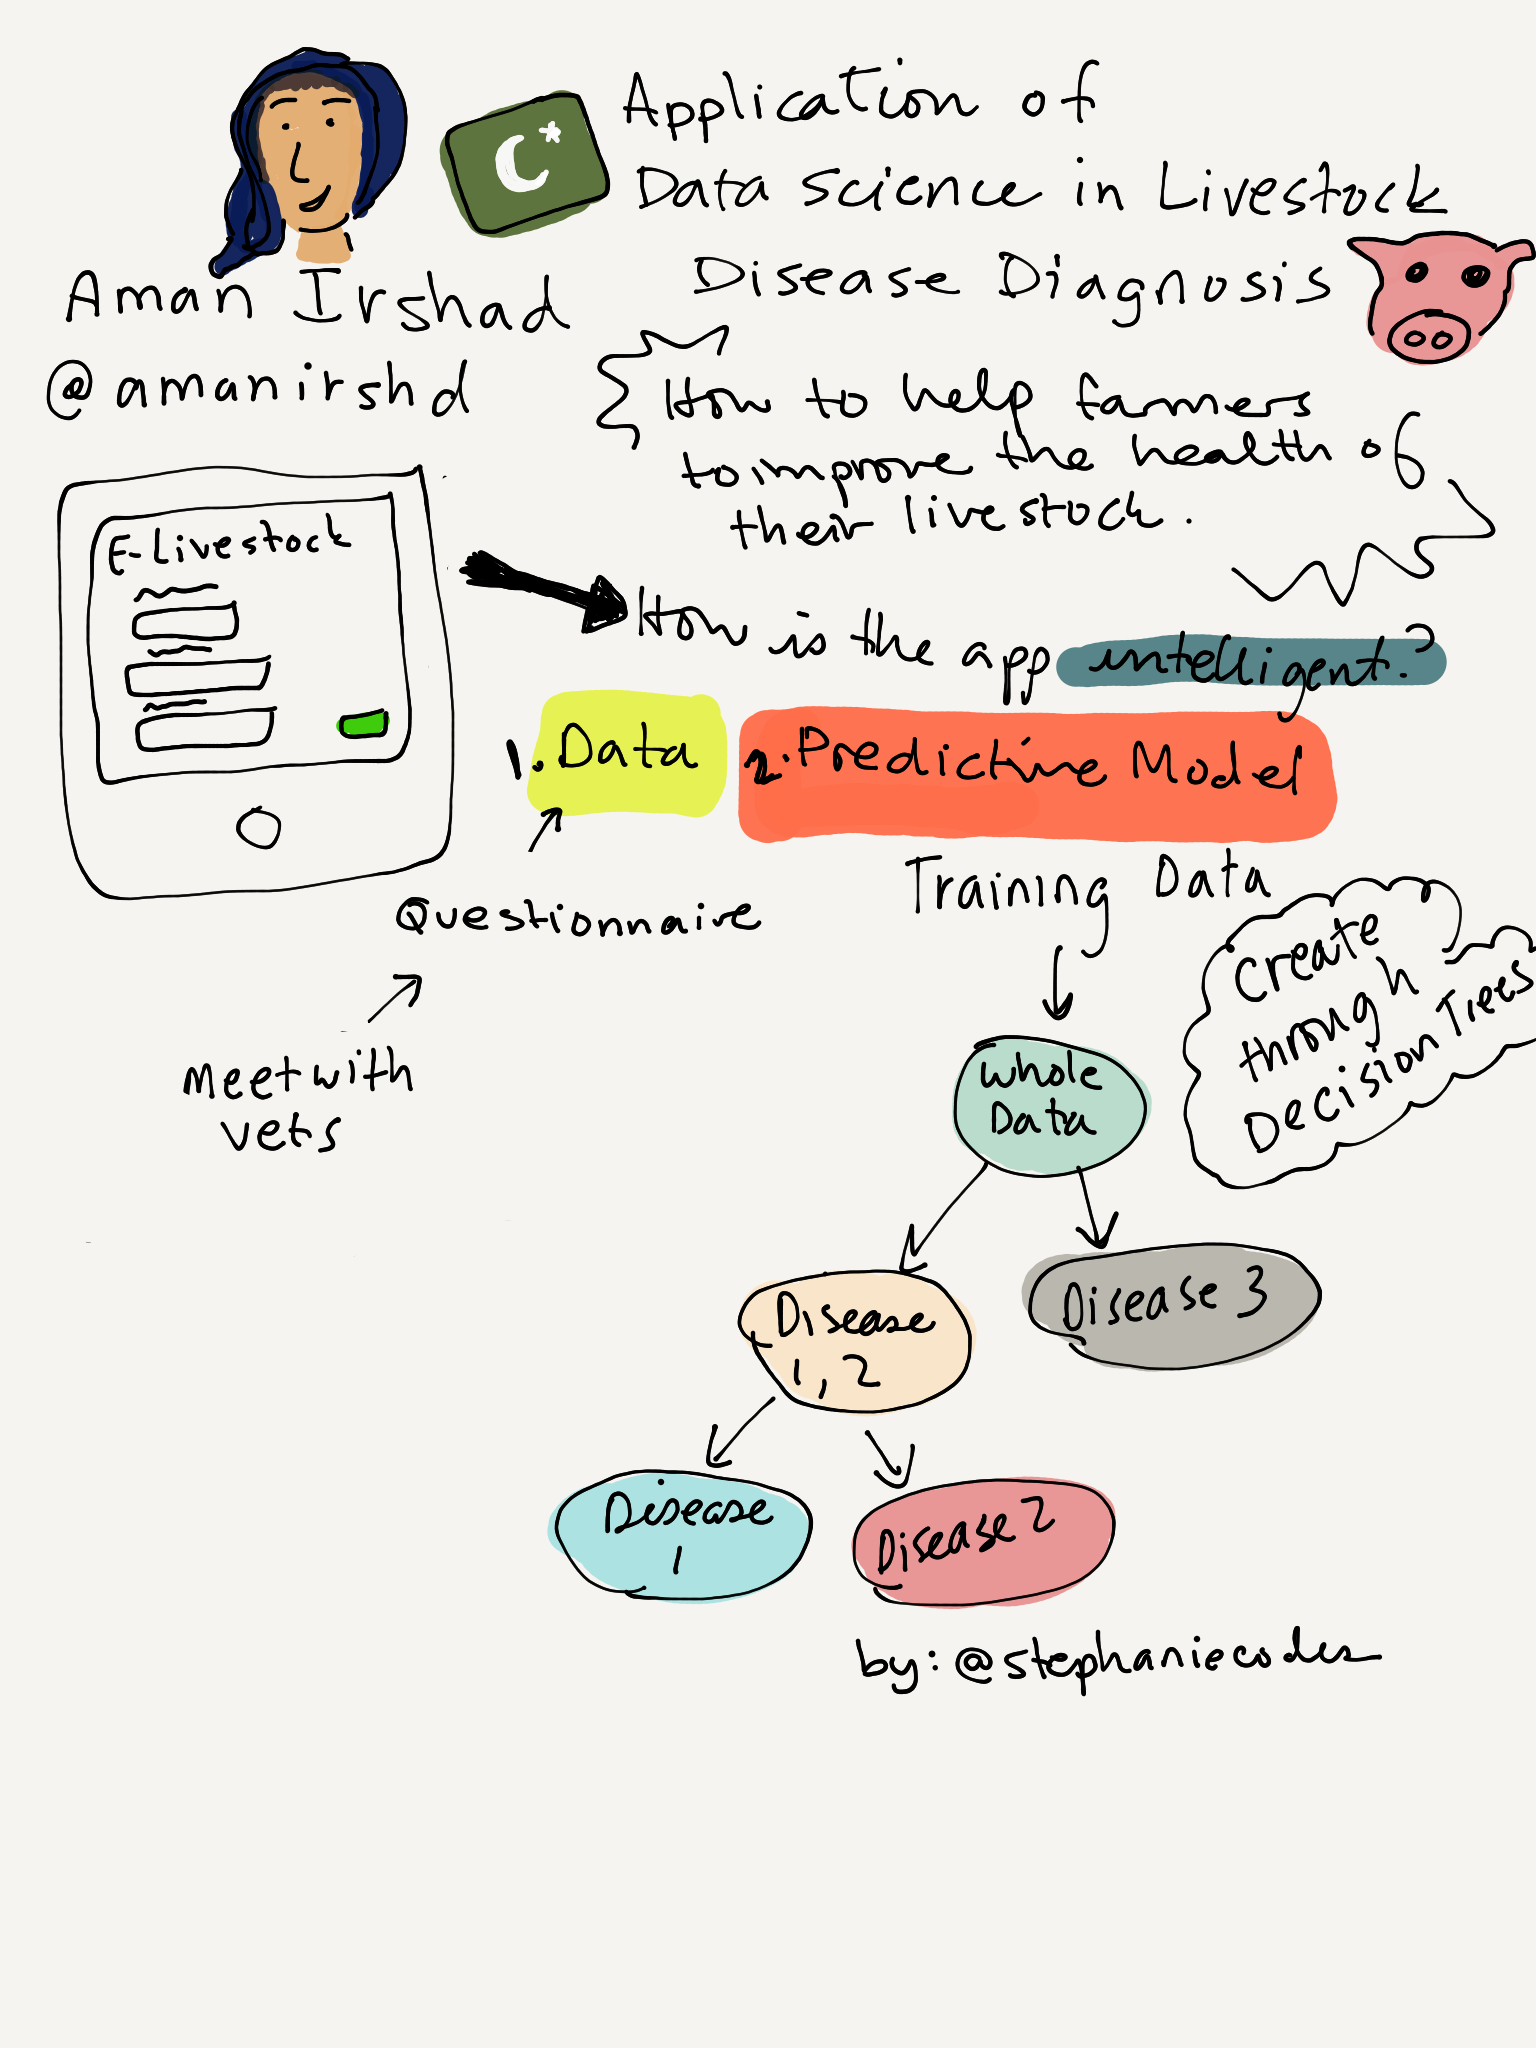 Application of
Data Science in Livestock
Disease Diagnosis
Aman Irshad
@amanirshd
How to help farmers
to improve the health of
their livestock.
E-Livestock
How is the app intelligent?
1. Data
2. Predictive Model
Questionnaire
Meet with
vets
Training Data
Create
through
Decision Trees
Whole
Data
Disease
1, 2
Disease 3
Disease
1
Disease 2
by: @stephaniecodes